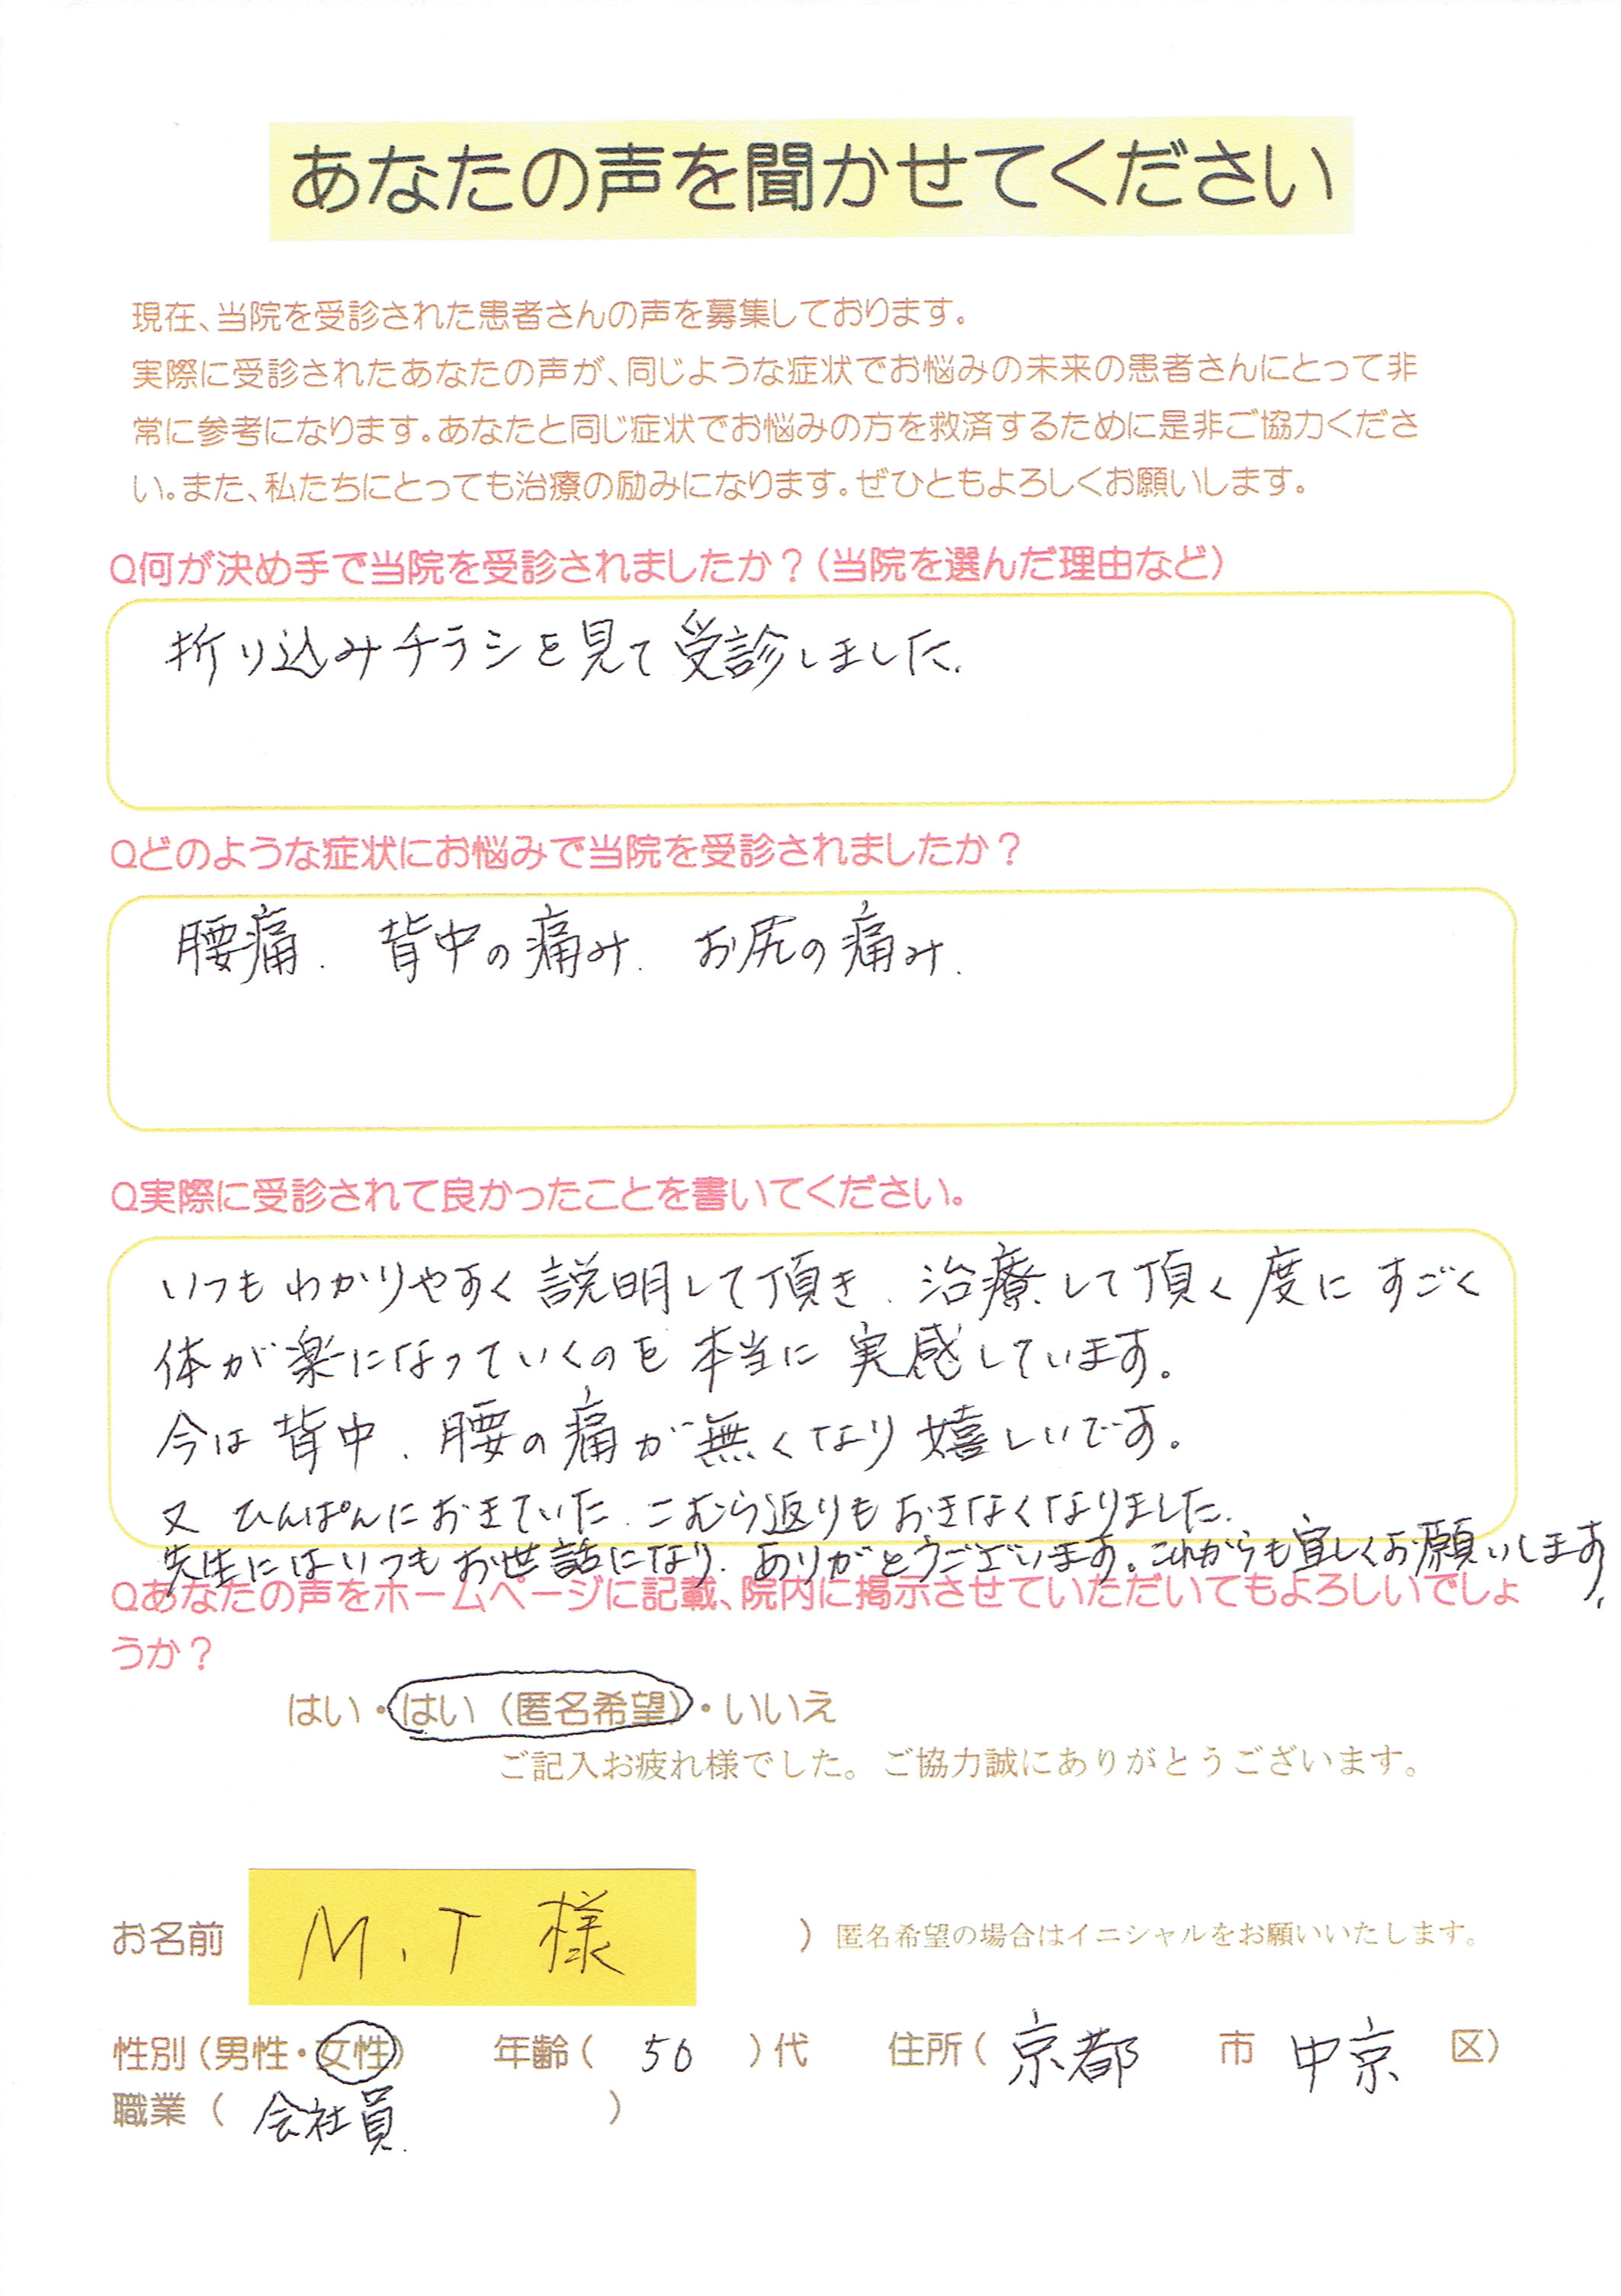 あなたの声を聞かせてください
現在、当院を受診された患者さんの声を募集しております。
実際に受診されたあなたの声が、同じような症状でお悩みの未来の患者さんにとって非
常に参考になります。あなたと同じ症状でお悩みの方を救済するために是非ご協力くださ
い。また、私たちにとっても治療の励みになります。ぜひともよろしくお願いします。
Q何が決め手で当院を受診されましたか？(当院を選んだ理由など)
折り込みチラシを見て受診しました.
Qどのような症状にお悩みで当院を受診されましたか？
腰痛. 背中の痛み. お尻の痛み.
Q実際に受診されて良かったことを書いてください。
いつもわかりやすく説明して頂き. 治療して頂く度にすごく
体が楽になっていくのを本当に実感しています。
今は背中. 腰の痛が無くなり嬉しいです。
又 ひんぱんにおきていた. こむら返りもおきなくなりました.
先生にはいつもお世話になり. ありがとうございます。これからも宜しくお願いします.
Qあなたの声をホームページに記載、院内に掲示させていただいてもよろしいでしょ
うか？
はい・はい（匿名希望）・いいえ
ご記入お疲れ様でした。ご協力誠にありがとうございます。
お名前 M.T 様 ）匿名希望の場合はイニシャルをお願いいたします。
性別（男性・女性） 年齢（ 50 ）代 住所（ 京都 市 中京 区）
職業（ 会社員. ）